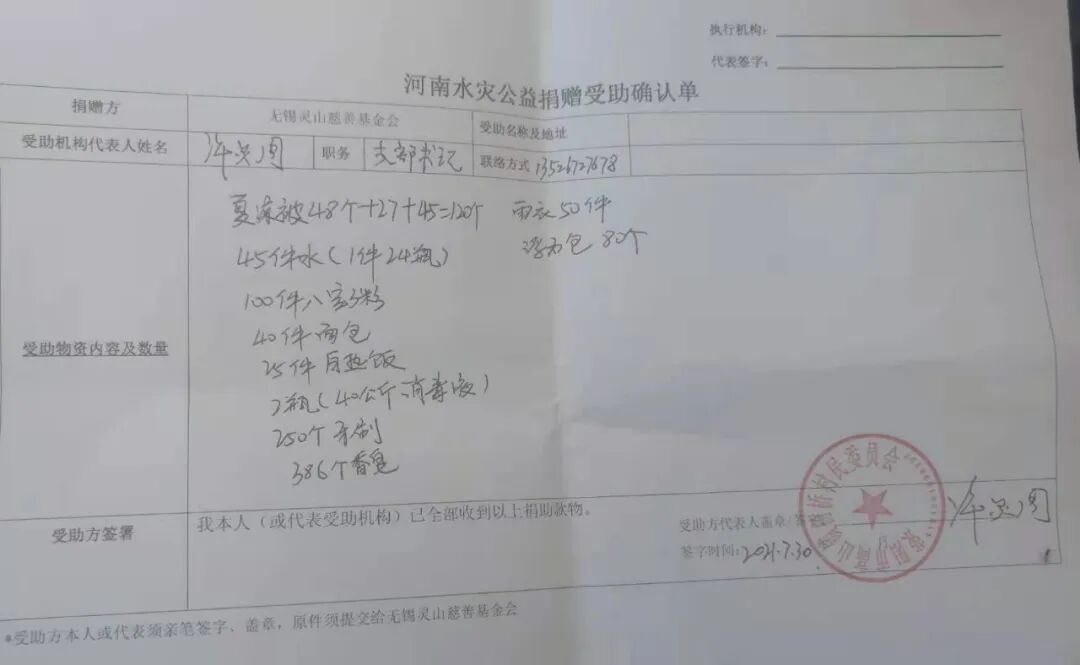 执行机构：
代表签字：
河南水灾公益捐赠受助确认单
捐赠方 无锡灵山慈善基金会 受助名称及地址
受助机构代表人姓名 职务 支部书记 联络方式 13526727678
受助物资内容及数量
夏凉被48个+27+45=120个 雨衣50件
45件水(1件24瓶) 80个
100件八宝粥
40件面包
25件自热饭
2瓶(40公斤消毒液)
250个牙刷
386个香皂
受助方签署 我本人（或代表受助机构）已全部收到以上捐助款物。
受助方代表人盖章/签
签字时间：2021.7.30
村民委员会
*受助方本人或代表须亲笔签字、盖章，原件须提交给无锡灵山慈善基金会